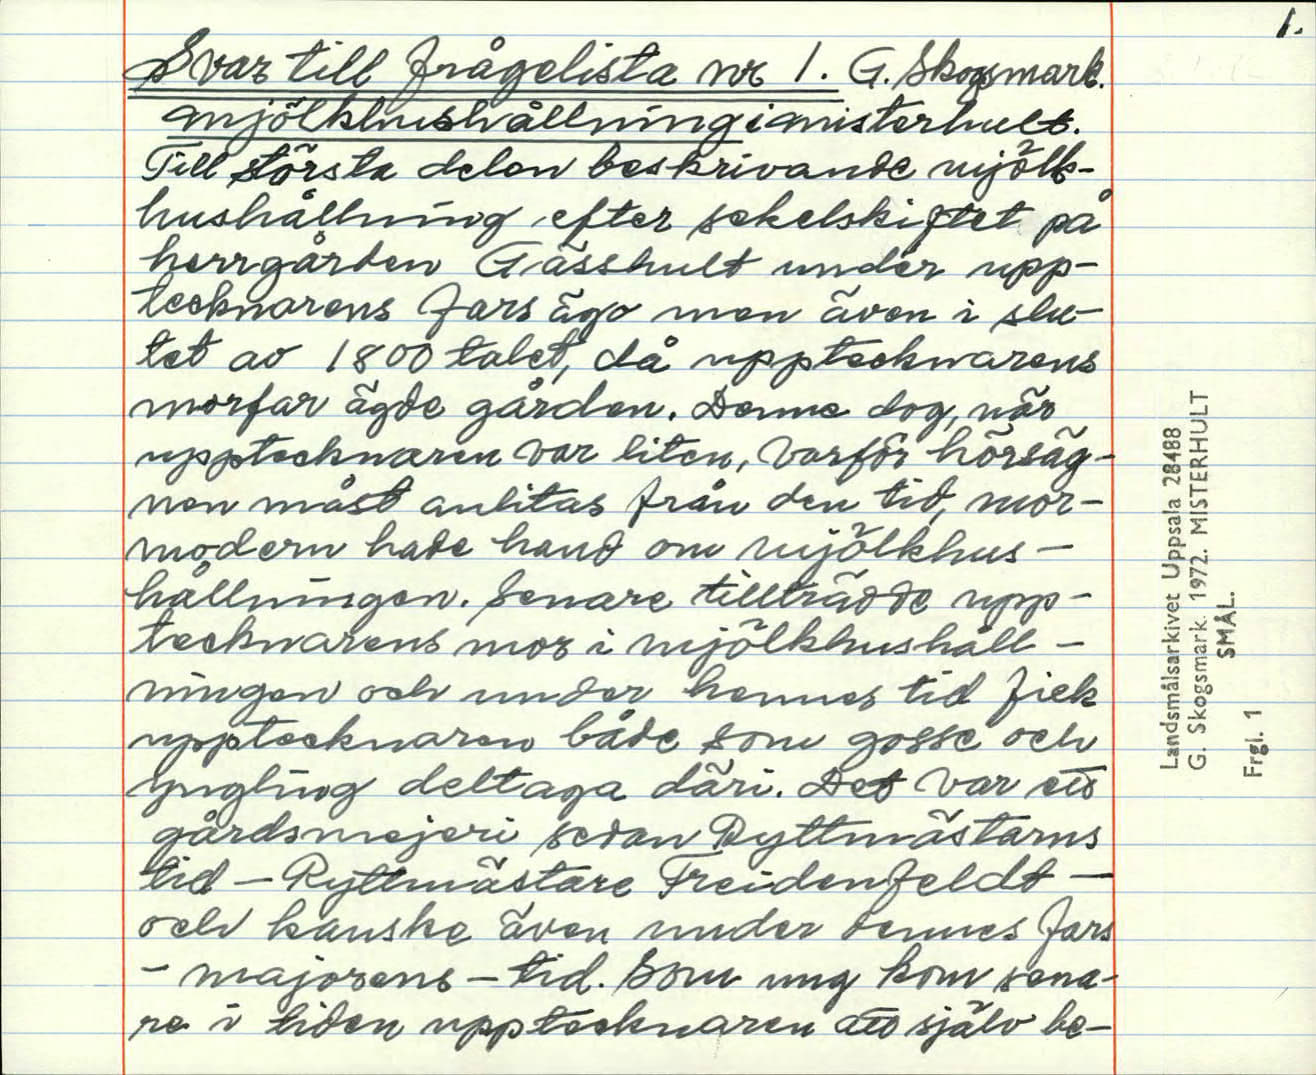 1.
Svar till frågelista nr 1. G. Skogsmark.
Mjölkhushållning i Misterhult.
Till största delen beskrivande mjölk-
hushållning efter sekelskiftet på
herrgården Gässhult under upp-
tecknarens fars ägo men även i slu-
tet av 1800 talet, då upptecknarens
morfar ägde gården. Denne dog, när
upptecknaren var liten, varför hörsäg-
nen måst anlitas från den tid, mor-
modern hade hand om mjölkhus-
hållningen. Senare tillträdde upp-
tecknarens mor i mjölkhushåll-
ningen och under hennes tid fick
upptecknaren både som gosse och
yngling deltaga däri. Det var ett
gårdsmejeri sedan Ryttmästarns
tid – Ryttmästare Freidenfeldt –
och kanske även under dennes fars
– majorens – tid. Som ung kom sena-
re i tiden upptecknaren att själv be-
Landsmålsarkivet Uppsala 28488
G. Skogsmark. 1972. MISTERHULT
SMÅL.
Frgl. 1